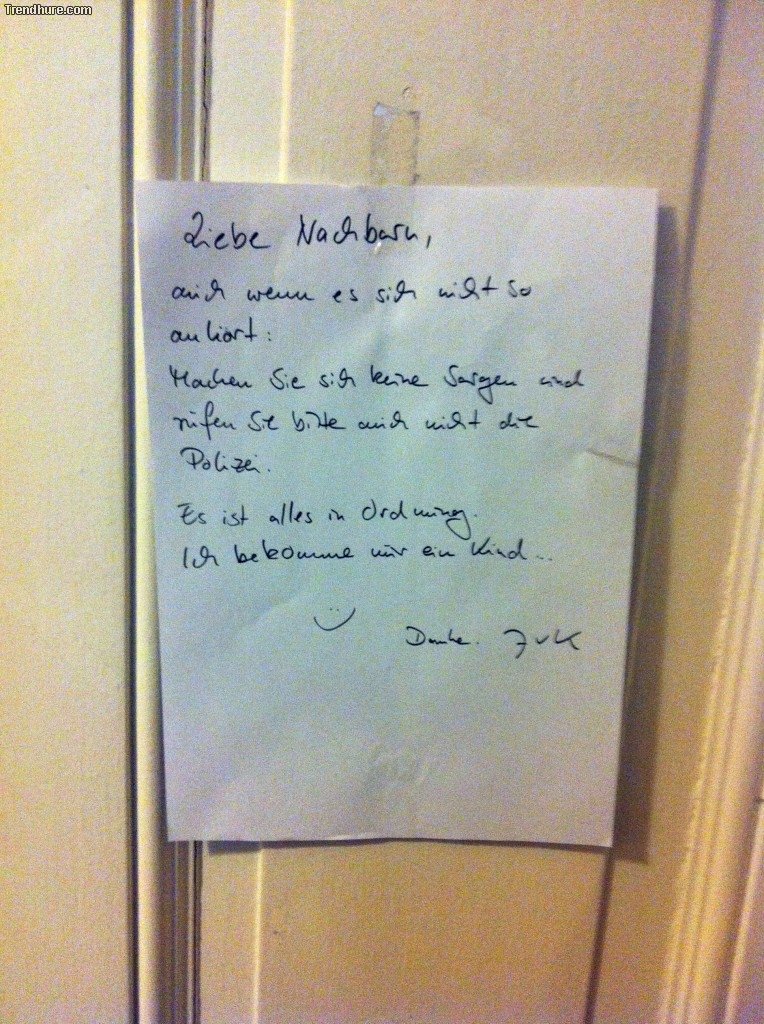 Trendhure.com
Liebe Nachbarn,
auch wenn es sich nicht so
anhört:
Machen Sie sich keine Sorgen und
rufen Sie bitte auch nicht die
Polizei.
Es ist alles in Ordnung.
Ich bekomme nur ein Kind...
Danke. JvK